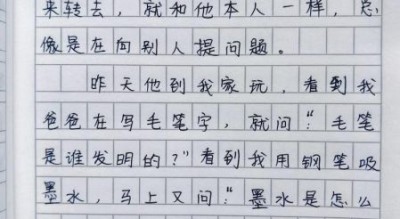 来转去，就和他本人一样，总
像是在向别人提问题。
昨天他到我家玩，看到我
爸爸在写毛笔字，就问："毛笔
是谁发明的？"看到我用钢笔吸
墨水，马上又问："墨水是怎么